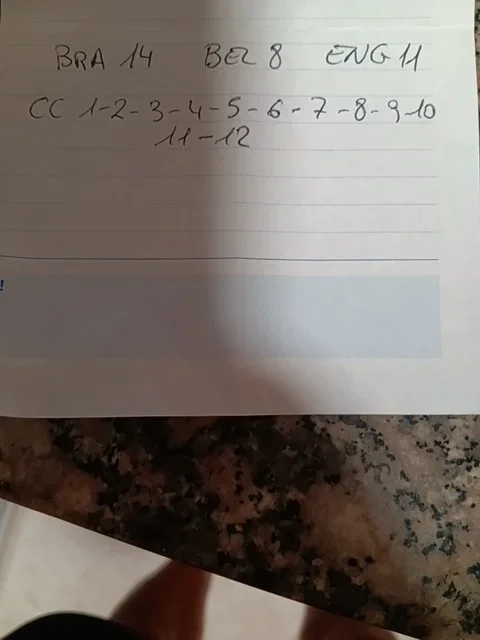 BRA 14 BEL 8 ENG 11
CC 1-2-3-4-5-6-7-8-9-10
11-12
!